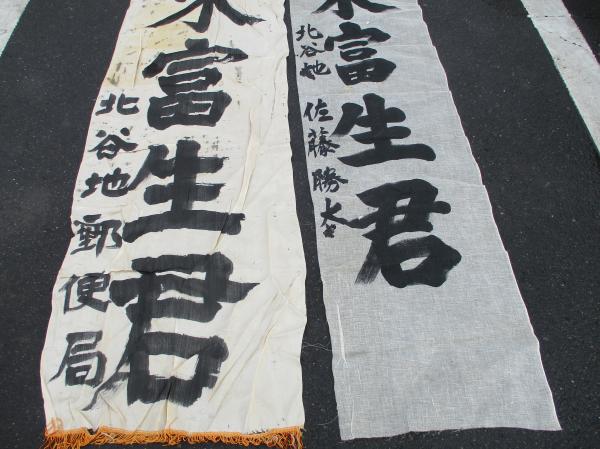 富生君
北谷地 佐藤勝
富生君
北谷地郵便局